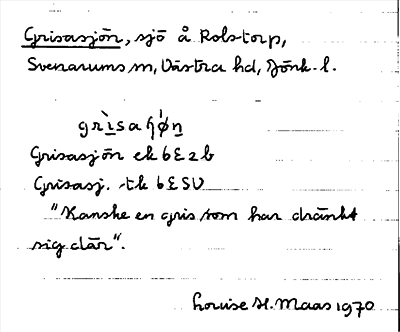 Grisasjön, sjö å Rolstorp,
Svenarums sn, Västra hd, Jönk. l.
grìsaɧø̀n
Grisasjön ek 6E2b
Grisasj. -tk 6ESV
"Kanske en gris som har dränkt
sig där".
Louise H. Maas 1970